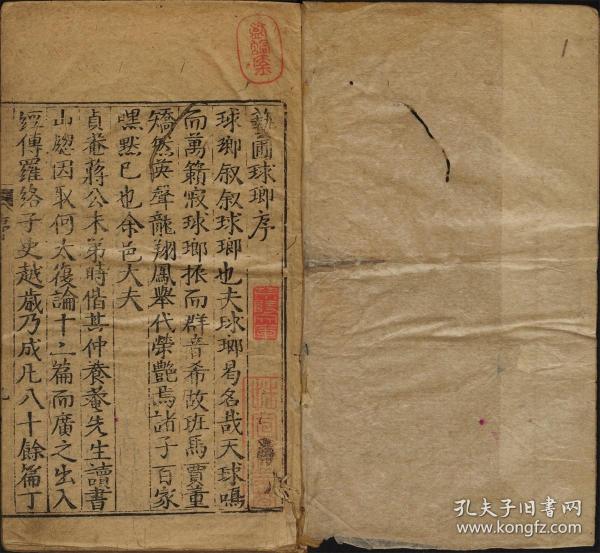 藝圃球瑯序
球瑯叙叙球瑯也夫球瑯曷名哉天球鳴
而萬籟寂球瑯振而群音希故班馬賈董
矯然英聲龍翔鳳舉代榮艷焉諸子百家
嘿默已也余邑大夫
貞菴蔣公未第時偕其仲養菴先生讀書
山窓因取何太復論十二篇而廣之出入
經傳羅絡子史越歲乃成凡八十餘篇丁
序
1
孔夫子旧书网
www.kongfz.com